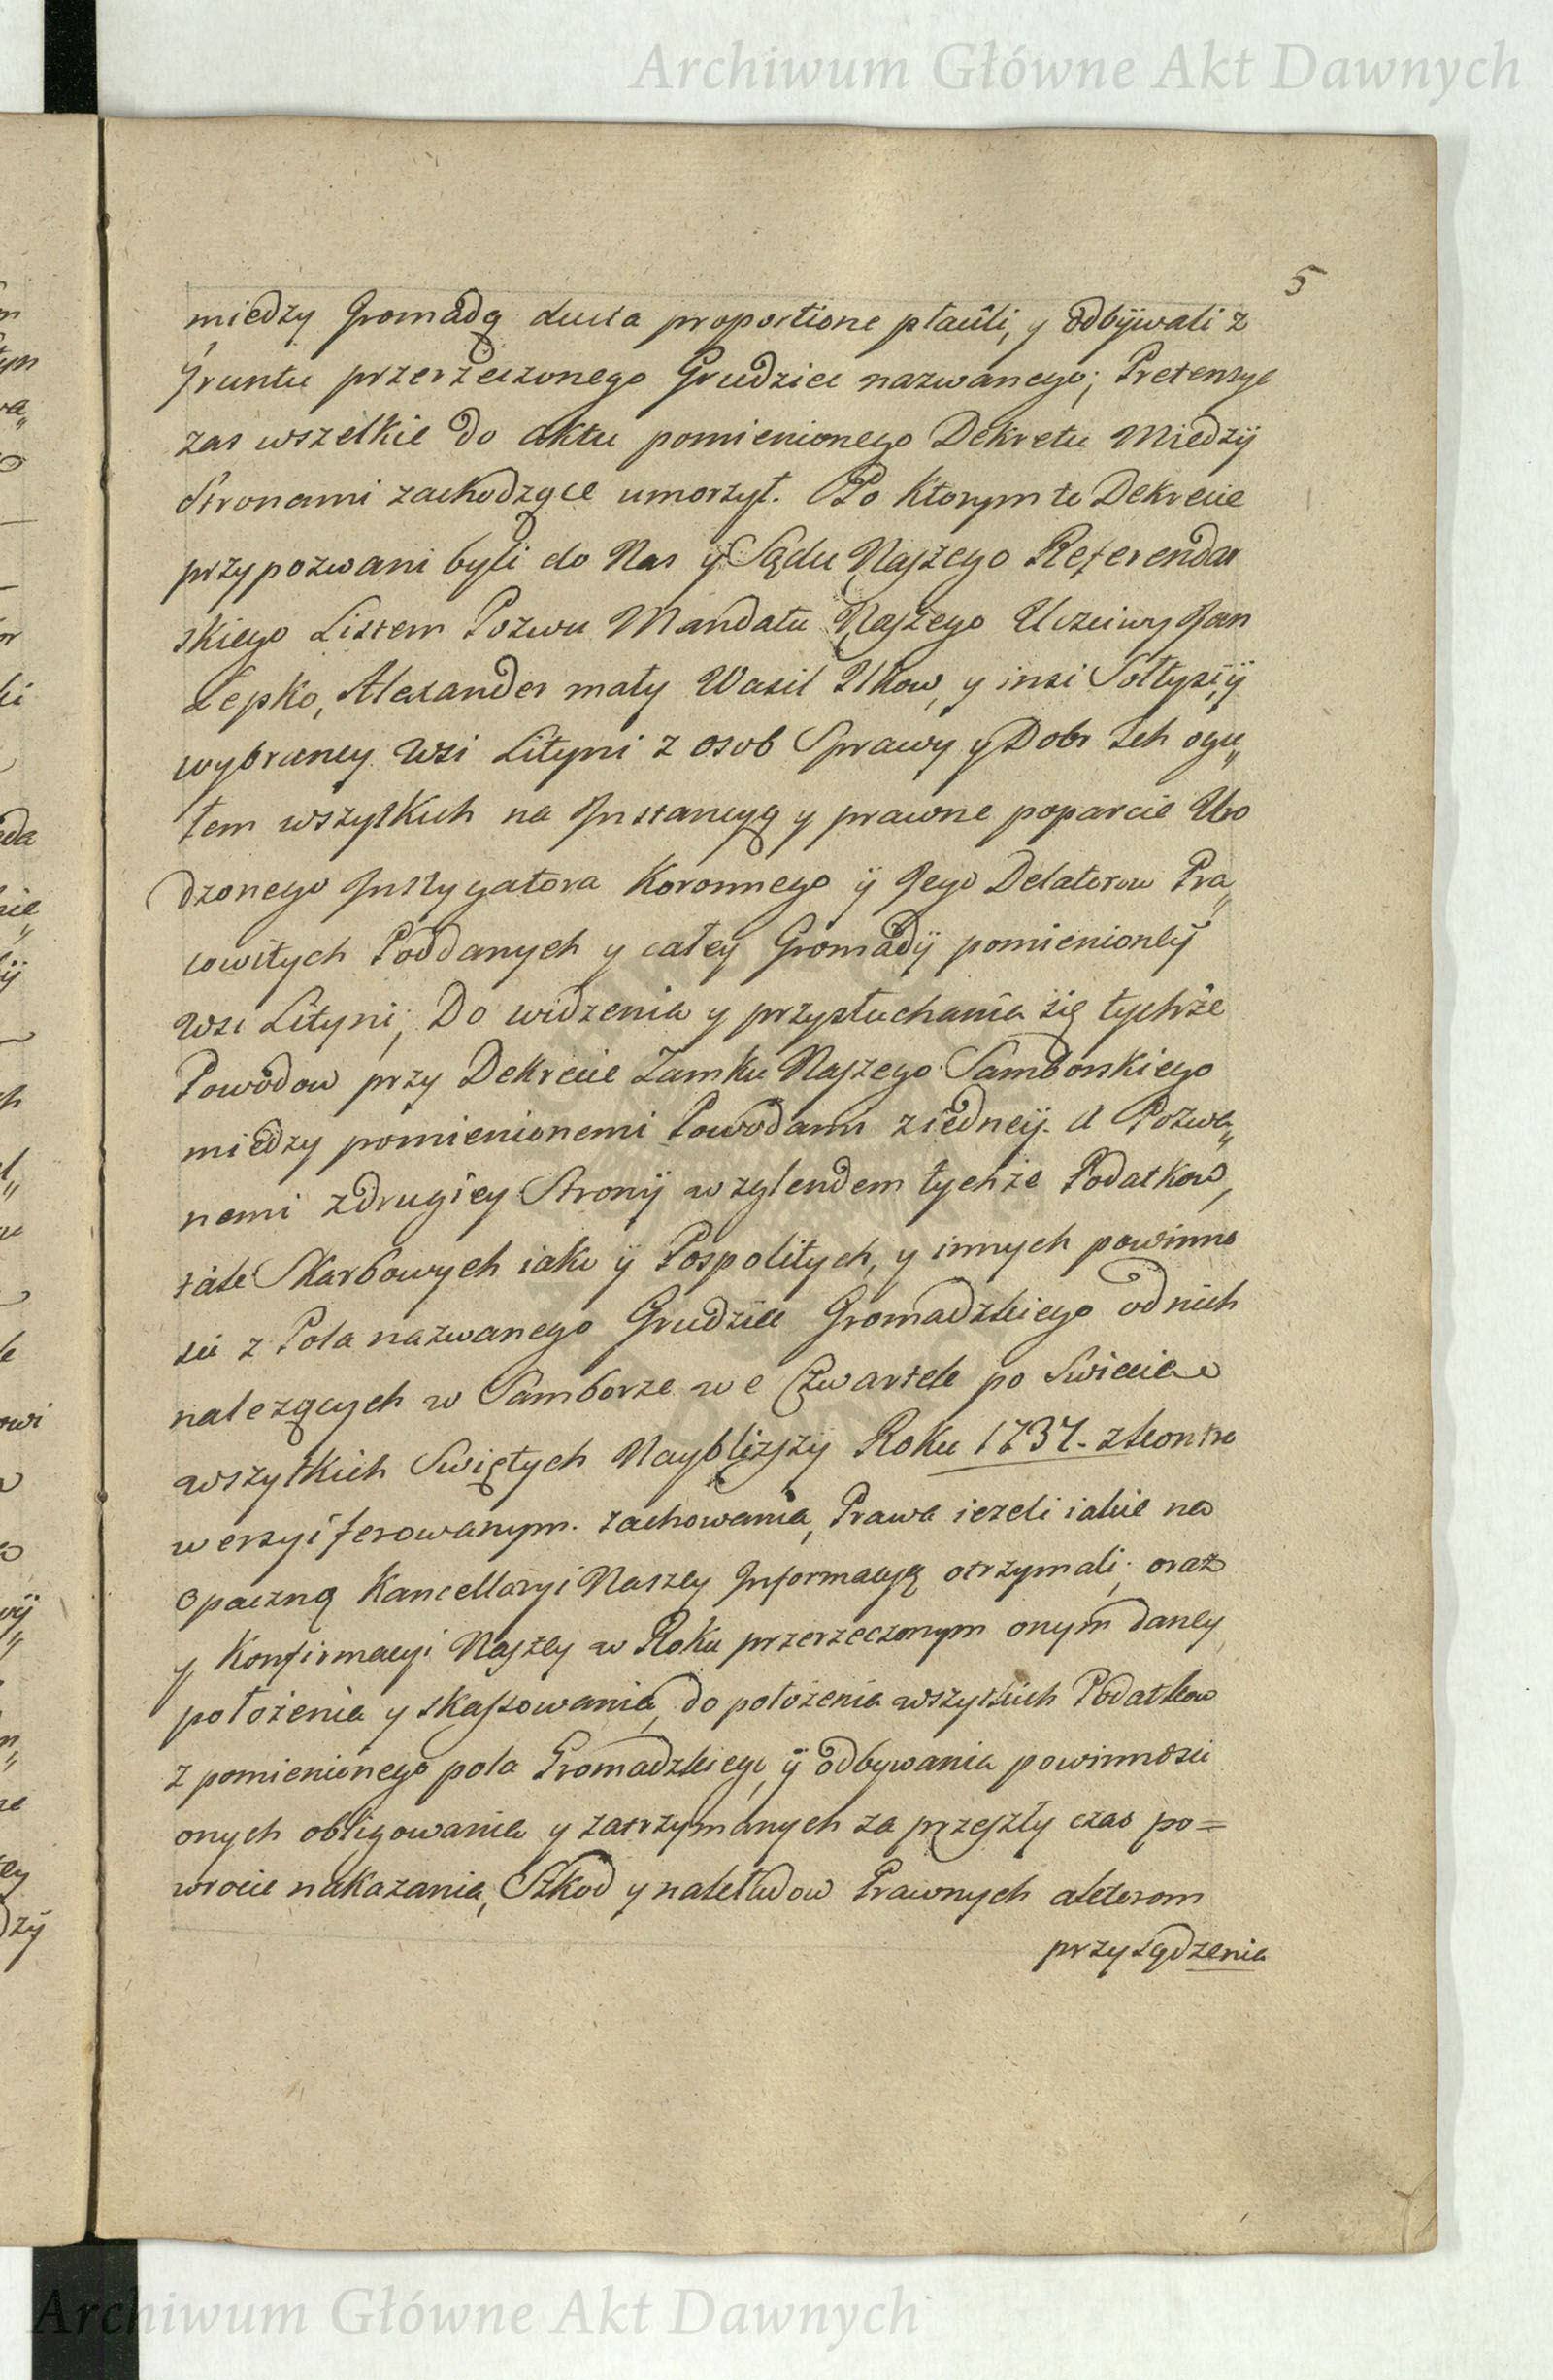 Archiwum Główne Akt Dawnych
5
między Gromadą ducta proportione płacili, y odbywali z
Gruntu przerzeczonego Grudzice nazwanego; Pretensye
zas wszelkie do aktu pomienionego Dekretu Miedzÿ
Stronami zachodzące umorzył. Po ktorym to Dekrecie
przypozwani byli do Nas ÿ Sądu Naszego Referendar
skiego Listem Pozwu Mandatu Naszego Uczciwy Jan
Łepko, Alexander mały Wasil Ilkow, y insi Sołtysi ÿ
wybrancy wsi Lityni z osob Sprawy y Dobr Ich ogu„
łem wszytkich na Instancyą y prawne poparcie Uro
dzonego Instygatora Koronnego ÿ Jego Delatorow Pra„
cowitych Poddanych y całey Gromadÿ pomienioneÿ
wsi Lityni; Do widzenia y przysłuchania się tychże
Powodow przy Dekrecie Zamku Naszego Samborskiego
między pomienionemi Powodami z iedneÿ. a Pozwa„
nemi z drugiey Stronÿ względem tychże Podatkow,
tak Skarbowych iako ÿ Pospolitych, y innych powinno
sci z Pola nazwanego Grudzice Gromadzkiego od nich
nalezących w Samborze we Czwartek po Swiecie
wszytkich Swiętych Nayblizszy Roku 1737. zkontro
wersyiferowanym. zachowania, Prawa iezeli iakie na
opaczną Kancellaryi Naszey Informacyą otrzymali; oraz
y Konfirmacyi Naszey w Roku przerzeczonym onym daney
położenia y skassowania, do położenia wszytkich Podatkow
z pomienionego pola Gromadzkiego, ÿ odbywania powinnosci
onych obligowania y zatrzymanych za przeszły czas po=
wrocie nakazania, Szkod y nakładow Prawnych aktorom
przysądzenia
Archiwum Główne Akt Dawnych